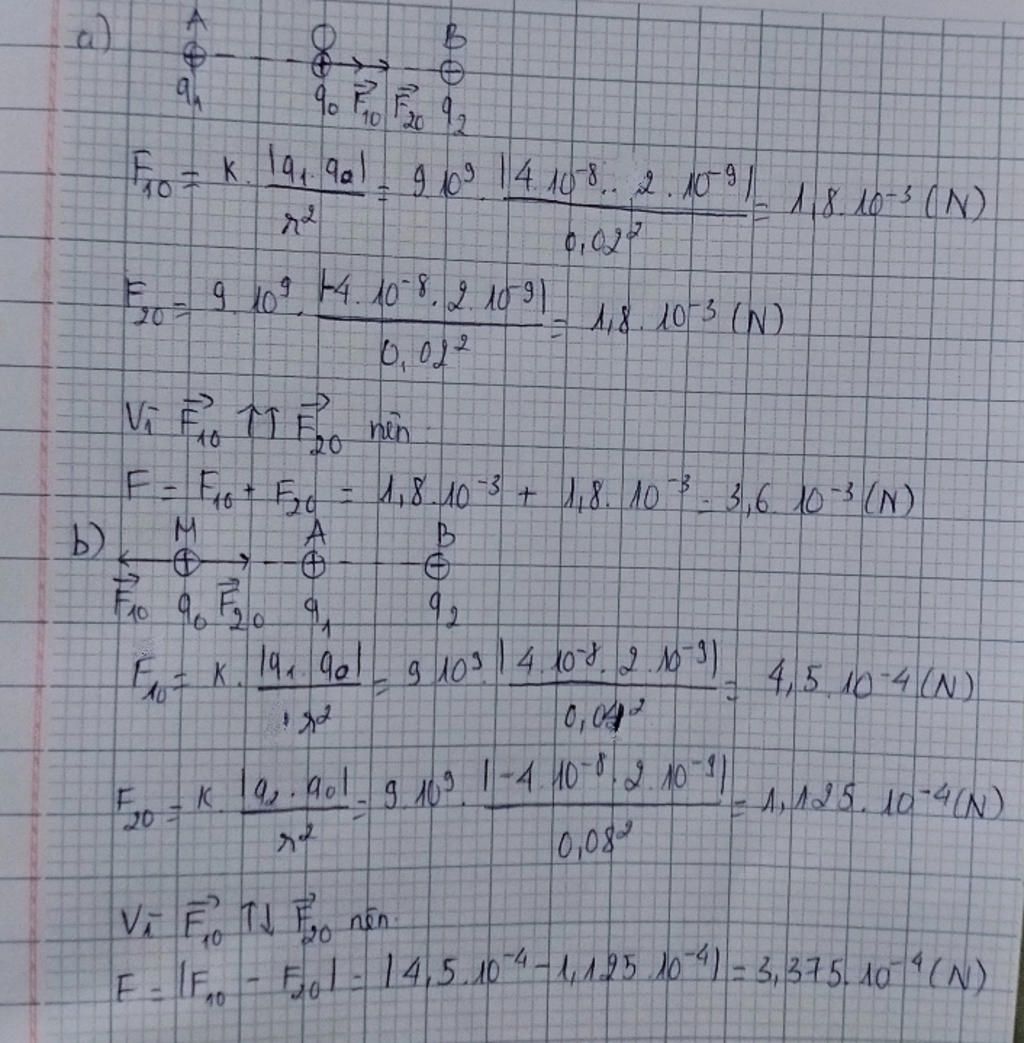 a) A O B
q₁ q₀ F⃗₁₀ F⃗₂₀ q₂
F₁₀ = k. |q₁.q₀| / r² = 9.10⁹. |4.10⁻⁸. 2.10⁻⁹| / 0,02² = 1,8.10⁻³ (N)
F₂₀ = 9.10⁹. |-4.10⁻⁸. 2.10⁻⁹| / 0,02² = 1,8.10⁻³ (N)
Vì F⃗₁₀ ↑↑ F⃗₂₀ nên
F = F₁₀ + F₂₀ = 1,8.10⁻³ + 1,8.10⁻³ = 3,6.10⁻³ (N)
b) M A B
F⃗₁₀ q₀ F⃗₂₀ q₁ q₂
F₁₀ = k. |q₁.q₀| / r² = 9.10⁹. |4.10⁻⁸. 2.10⁻⁹| / 0,04² = 4,5.10⁻⁴ (N)
F₂₀ = k. |q₂.q₀| / r² = 9.10⁹. |-4.10⁻⁸. 2.10⁻⁹| / 0,08² = 1,125.10⁻⁴ (N)
Vì F⃗₁₀ ↑↓ F⃗₂₀ nên
F = |F₁₀ - F₂₀| = |4,5.10⁻⁴ - 1,125.10⁻⁴| = 3,375.10⁻⁴ (N)